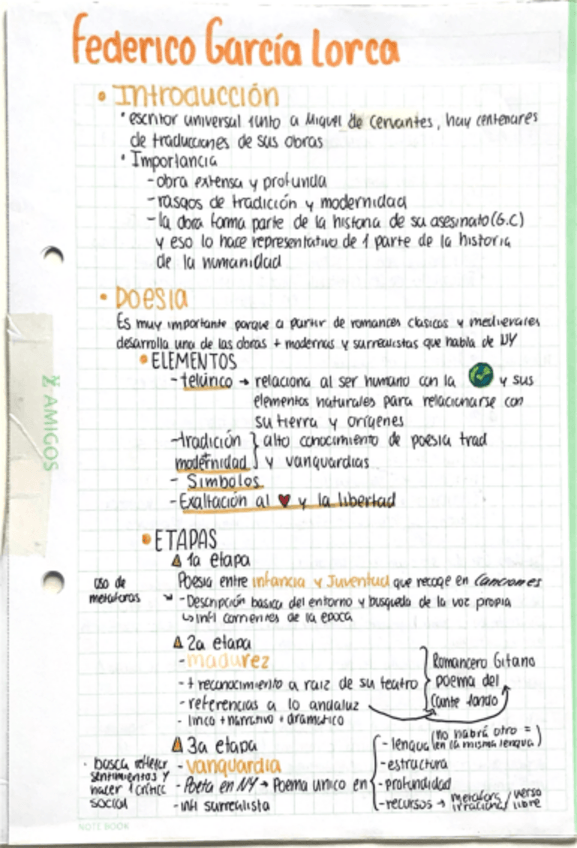 Federico García Lorca
• Introducción
• escritor universal junto a Miguel de Cervantes, hay centenares
de traducciones de sus obras
• Importancia
- obra extensa y profunda
- rasgos de tradición y modernidad
- la obra forma parte de la historia de su asesinato (G.C)
y eso lo hace representativo de 1 parte de la historia
de la humanidad
• Poesía
Es muy importante porque a partir de romances clasicos y medievales
desarrolla una de las obras + modernas y surrealistas que habla de NY
• ELEMENTOS
- telúrico → relaciona al ser humano con la y sus
elementos naturales para relacionarse con
su tierra y orígenes
- tradición } alto conocimiento de poesia trad
modernidad y vanguardias
- Simbolos
- Exaltación al ♥ y la libertad
AMIGOS
• ETAPAS
1a etapa
Poesia entre infancia y Juventud que recoge en Canciones
uso de
metaforas
- Descripción basica del entorno y busqueda de la voz propia
↳ infl corrientes de la epoca
2a etapa
- madurez
- + reconocimiento a raiz de su teatro
- referencias a lo andaluz
- lirico + narrativo + dramatico
Romancero Gitano
poema del
Cante Jondo
3a etapa
- vanguardia
- Poeta en NY → Poema unico en
- infl surrealista
- lengua (no habrá otro = en la misma lengua)
- estructura
- profundidad
- recursos → metafora irracional / verso libre
• busca reflejar
sentimientos y
hacer 1 crítica
social
NOTE BOOK